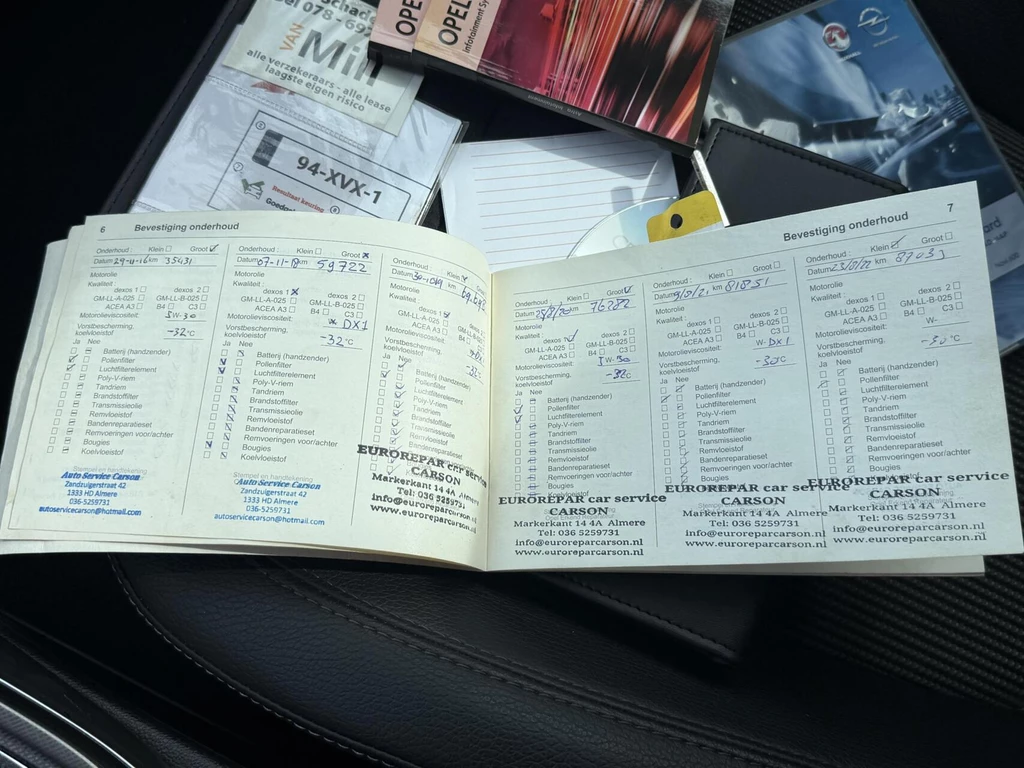 078-697
VAN
alle verzekeraars - alle lease
laagste eigen risico
94-XVX-1
Resultaat keuring
OPEL
OPEL
Infotainment
6 Bevestiging onderhoud
Onderhoud: Klein Groot
Datum 29-4-16 km 35431
Motorolie
Kwaliteit
dexos 1 dexos 2
GM-LL-A-025 GM-LL-B-025
ACEA A3 B4 C3
Motorolieviscositeit: 5 W-30
Vorstbescherming,
koelvloeistof -32°C
Ja Nee
Batterij (handzender)
Pollenfilter
Luchtfilterelement
Poly-V-riem
Tandriem
Brandstoffilter
Transmissieolie
Remvloeistof
Bandenreparatieset
Remvoeringen voor/achter
Bougies
Koelvloeistof
Stempel en handtekening
Auto Service Carson
Zandzuigerstraat 42
1333 HD Almere
036-5259731
autoservicecarson@hotmail.com
Onderhoud: Klein Groot
Datum 07-11-18 km 59722
Motorolie
Kwaliteit:
dexos 1 dexos 2
GM-LL-A-025 GM-LL-B-025
ACEA A3 B4 C3
Motorolieviscositeit: W- DX1
Vorstbescherming,
koelvloeistof -32°C
Ja Nee
Batterij (handzender)
Pollenfilter
Luchtfilterelement
Poly-V-riem
Tandriem
Brandstoffilter
Transmissieolie
Remvloeistof
Bandenreparatieset
Remvoeringen voor/achter
Bougies
Koelvloeistof
Auto Service Carson
Zandzuigerstraat 42
1333 HD Almere
036-5259731
autoservicecarson@hotmail.com
Onderhoud: Klein Groot
Motorolie
Kwaliteit:
dexos 1
GM-LL-A-025
ACEA A3
Motorolieviscositeit:
Vorstbescherming,
koelvloeistof
Ja Nee
Batterij (handzender)
Pollenfilter
Luchtfilterelement
Poly-V-riem
Tandriem
Brandstoffilter
Transmissieolie
Remvloeistof
Bandenreparatieset
EUROREPAR car service
CARSON
Markerkant 14 4A Almere
Tel: 036 5259731
info@euroreparcarson.nl
www.euroreparcarson.nl
Bevestiging onderhoud 7
Onderhoud: Klein Groot
Datum 25/8/20 km 76282
Motorolie
Kwaliteit:
dexos 1 dexos 2
GM-LL-A-025 GM-LL-B-025
ACEA A3 B4 C3
Motorolieviscositeit: 5 W-30
Vorstbescherming,
koelvloeistof -32°C
Ja Nee
Batterij (handzender)
Pollenfilter
Luchtfilterelement
Poly-V-riem
Tandriem
Brandstoffilter
Transmissieolie
Remvloeistof
Bandenreparatieset
Remvoeringen voor/achter
Bougies
Koelvloeistof
EUROREPAR car service
CARSON
Markerkant 14 4A Almere
Tel: 036 5259731
info@euroreparcarson.nl
www.euroreparcarson.nl
Onderhoud: Klein Groot
Datum 9/5/21 km 81851
Motorolie
Kwaliteit:
dexos 1 dexos 2
GM-LL-A-025 GM-LL-B-025
ACEA A3 B4 C3
Motorolieviscositeit: W- DX1
Vorstbescherming,
koelvloeistof -30°C
Ja Nee
Batterij (handzender)
Pollenfilter
Luchtfilterelement
Poly-V-riem
Tandriem
Brandstoffilter
Transmissieolie
Remvloeistof
Bandenreparatieset
Remvoeringen voor/achter
Bougies
EUROREPAR car service
CARSON
Markerkant 14 4A Almere
Tel: 036 5259731
info@euroreparcarson.nl
www.euroreparcarson.nl
Onderhoud: Klein Groot
km 87033
Motorolie
Kwaliteit:
dexos 1 dexos 2
GM-LL-A-025 GM-LL-B-025
ACEA A3 B4 C3
Motorolieviscositeit: W-
Vorstbescherming,
koelvloeistof -30°C
Ja Nee
Batterij (handzender)
Pollenfilter
Luchtfilterelement
Poly-V-riem
Tandriem
Brandstoffilter
Transmissieolie
Remvloeistof
Bandenreparatieset
Remvoeringen voor/achter
Bougies
Koelvloeistof
EUROREPAR car service
CARSON
Markerkant 14 4A Almere
Tel: 036 5259731
info@euroreparcarson.nl
www.euroreparcarson.nl